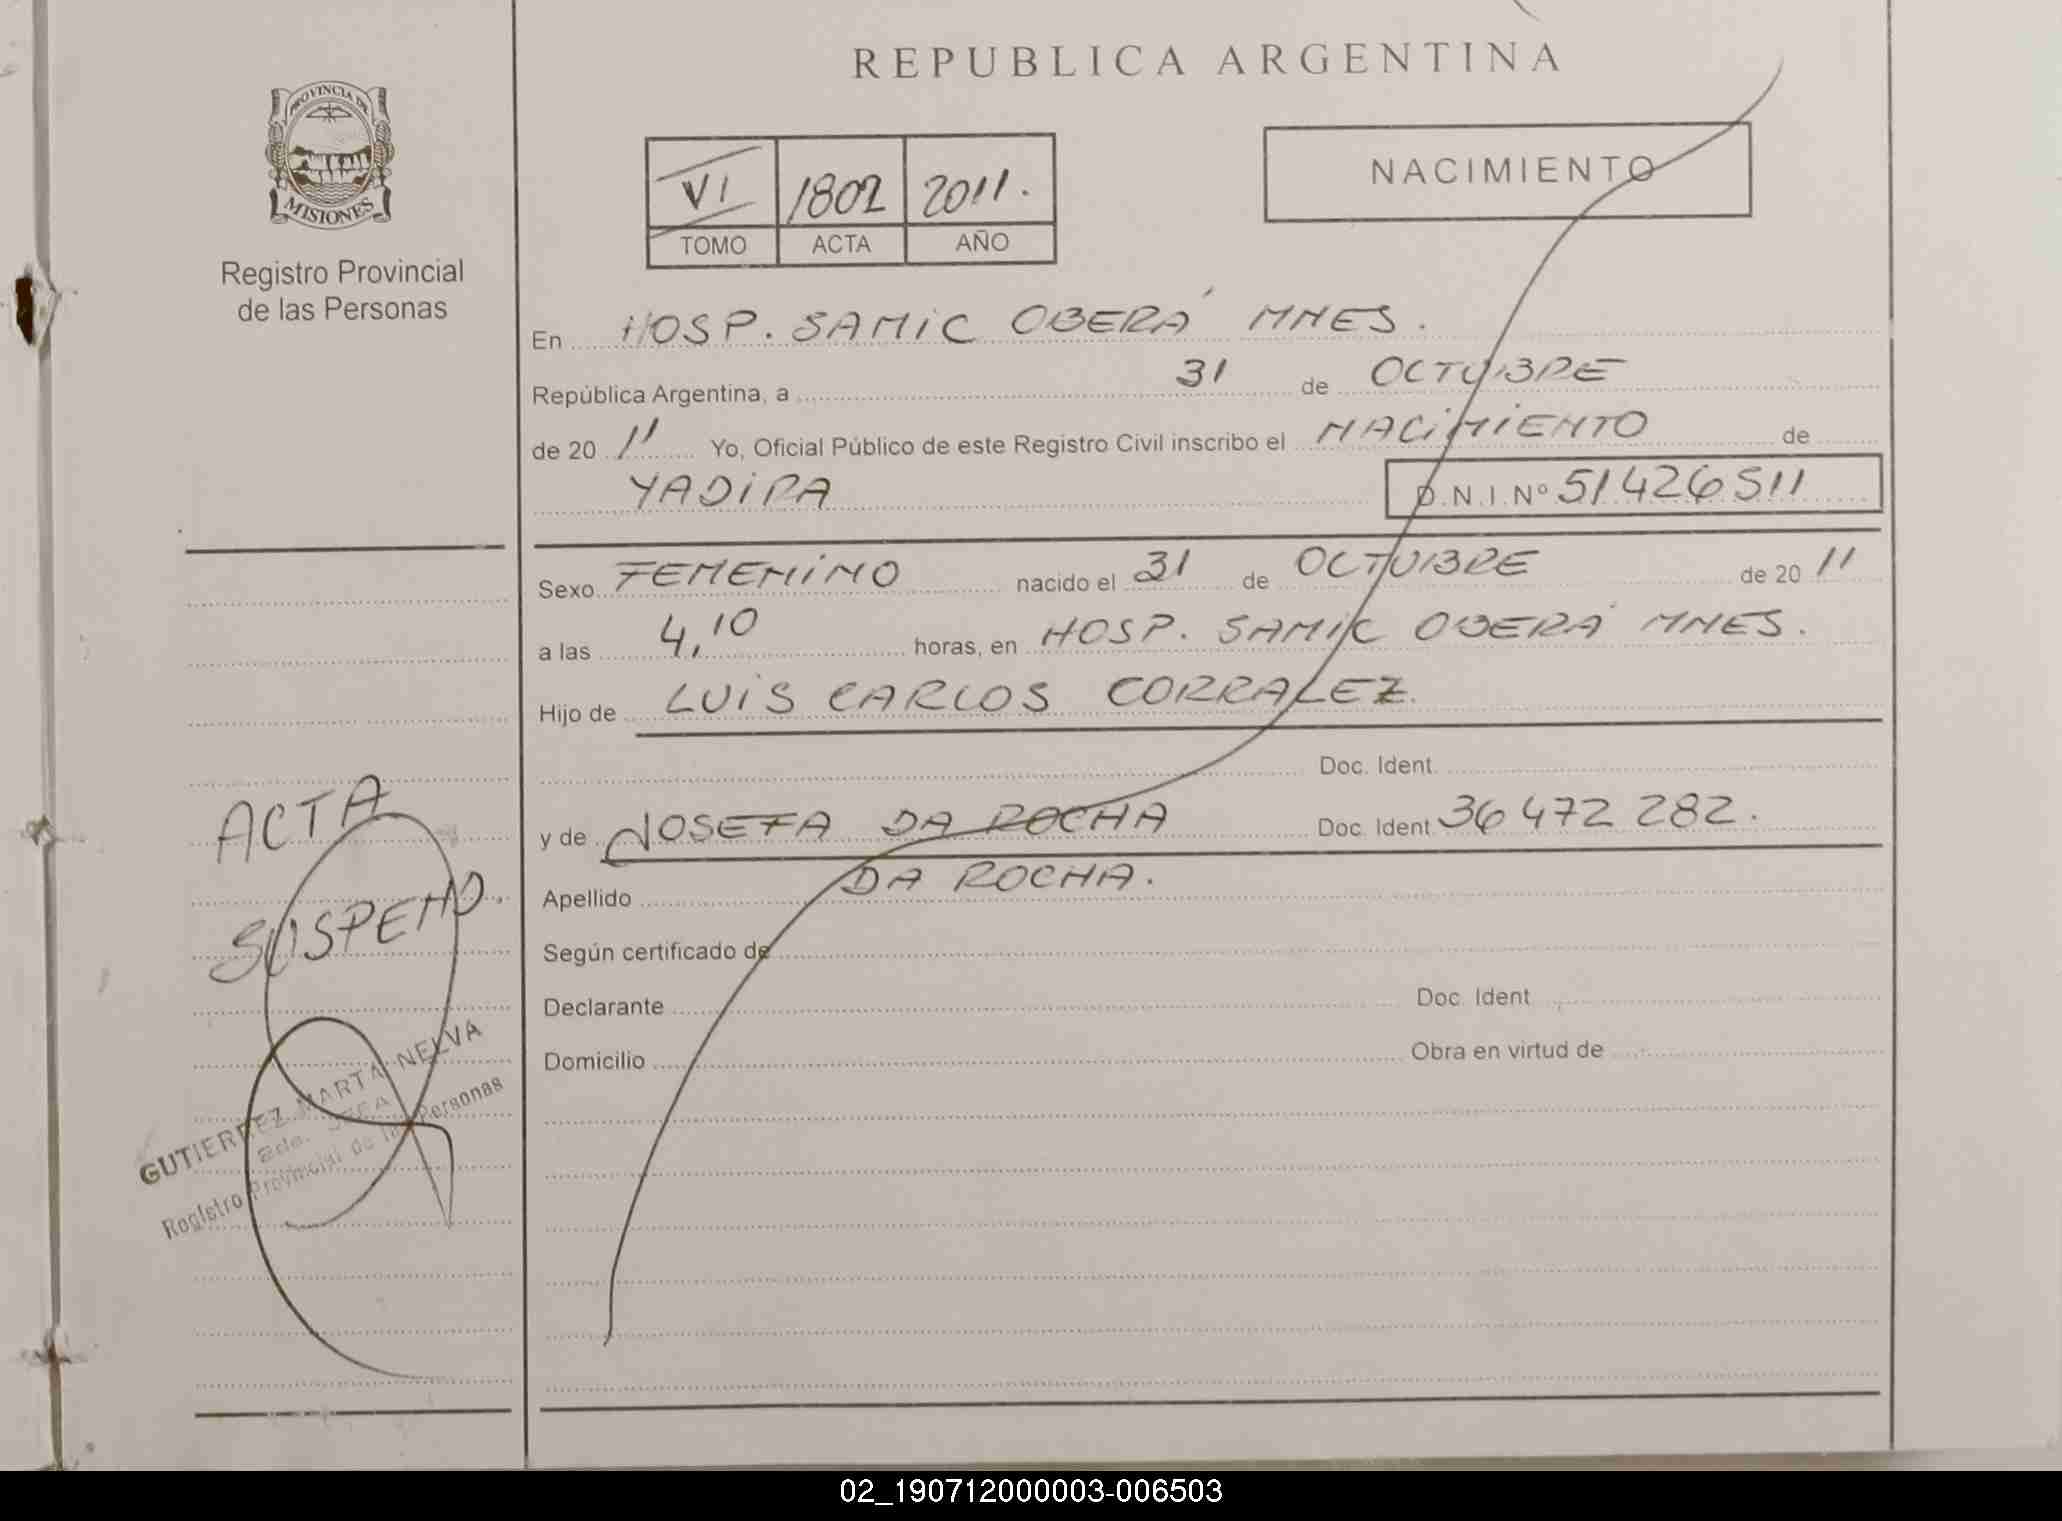 REPUBLICA ARGENTINA
PROVINCIA DE
MISIONES
Registro Provincial
de las Personas
VI 1802 2011.
TOMO ACTA AÑO
NACIMIENTO
En HOSP. SAMIC OBERÁ MNES.
República Argentina, a 31 de OCTUBRE
de 20 11 Yo, Oficial Público de este Registro Civil inscribo el NACIMIENTO de
YADIRA D.N.I. Nº 51426511
Sexo FEMENINO nacido el 31 de OCTUBRE de 20 11
a las 4,10 horas, en HOSP. SAMIC OBERÁ MNES.
Hijo de LUIS CARLOS CORRALEZ.
Doc. Ident.
y de JOSEFA DA ROCHA Doc. Ident 36 472 282.
Apellido DA ROCHA.
Según certificado de
Declarante Doc. Ident
Domicilio Obra en virtud de
ACTA
SUSPEND.
GUTIERREZ MARTA NELVA
Registro Provincial de las Personas
02_190712000003-006503